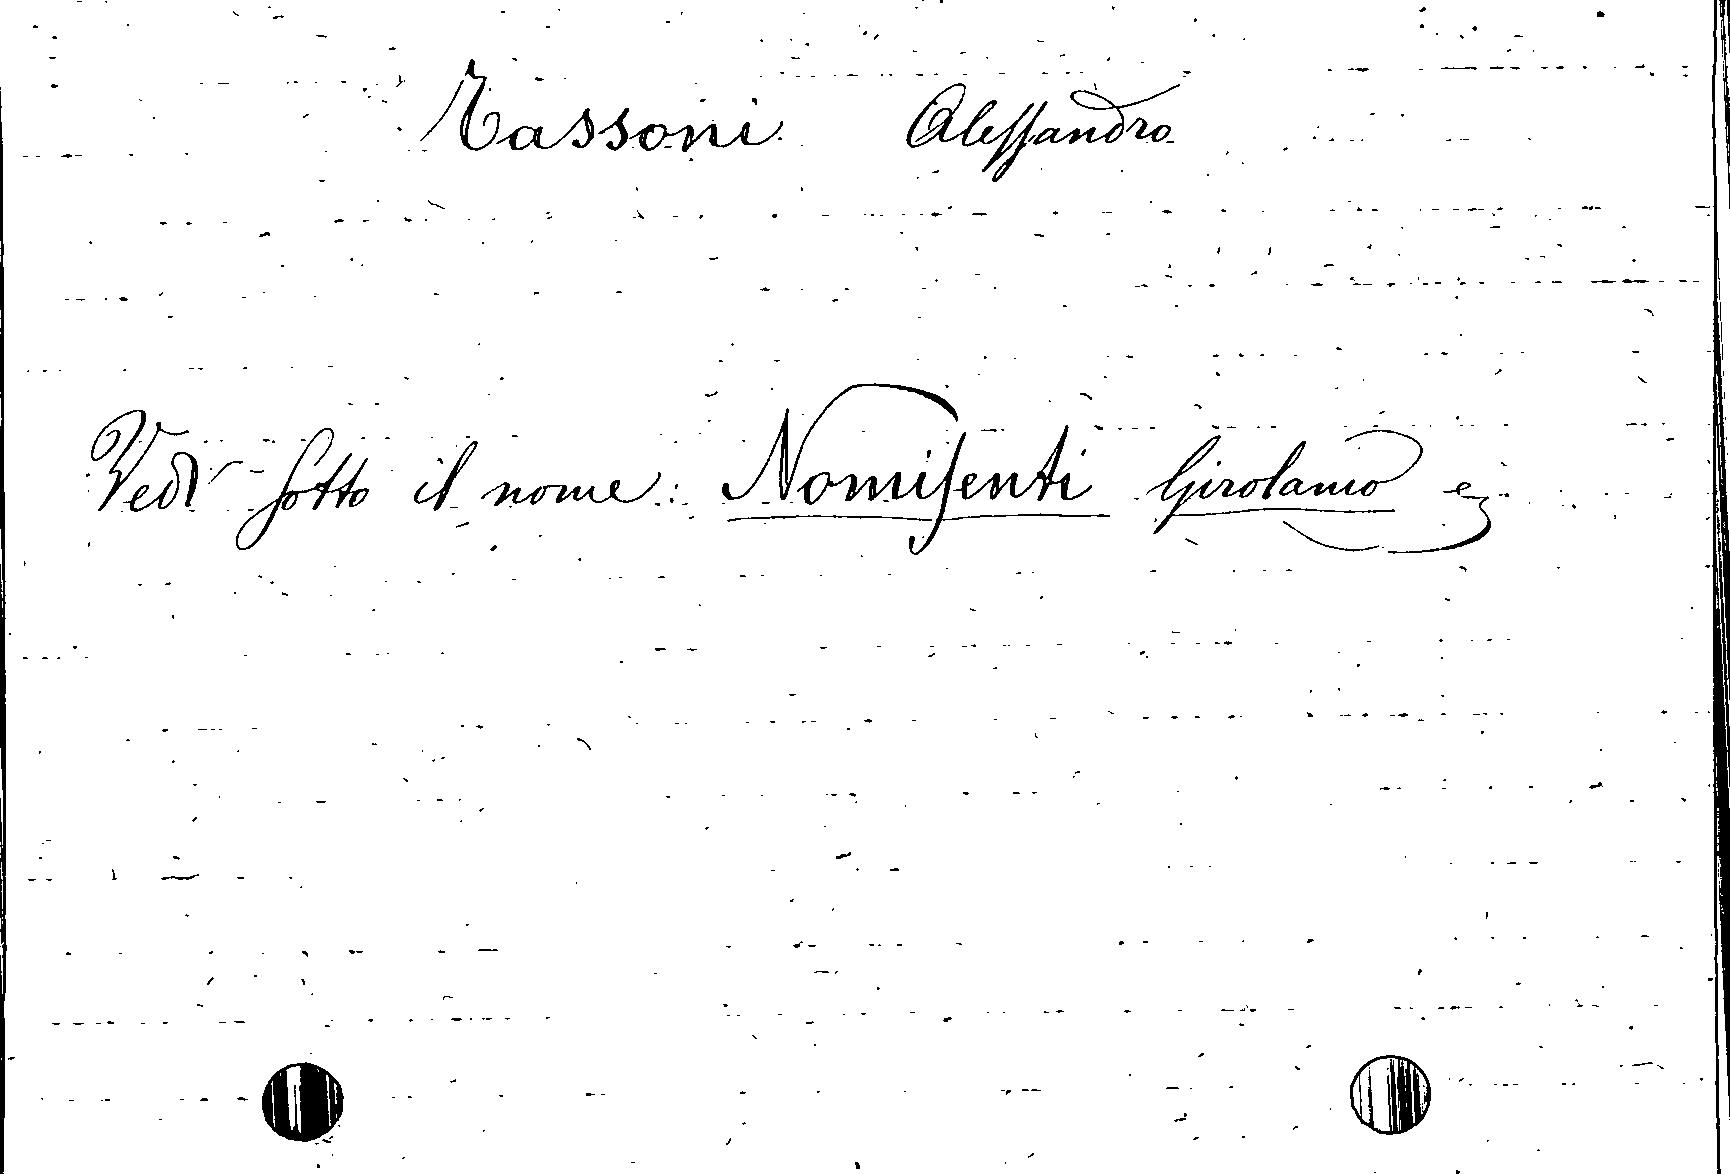 Tassoni Alessandro
Vedi sotto il nome: Nomisenti Girolamo